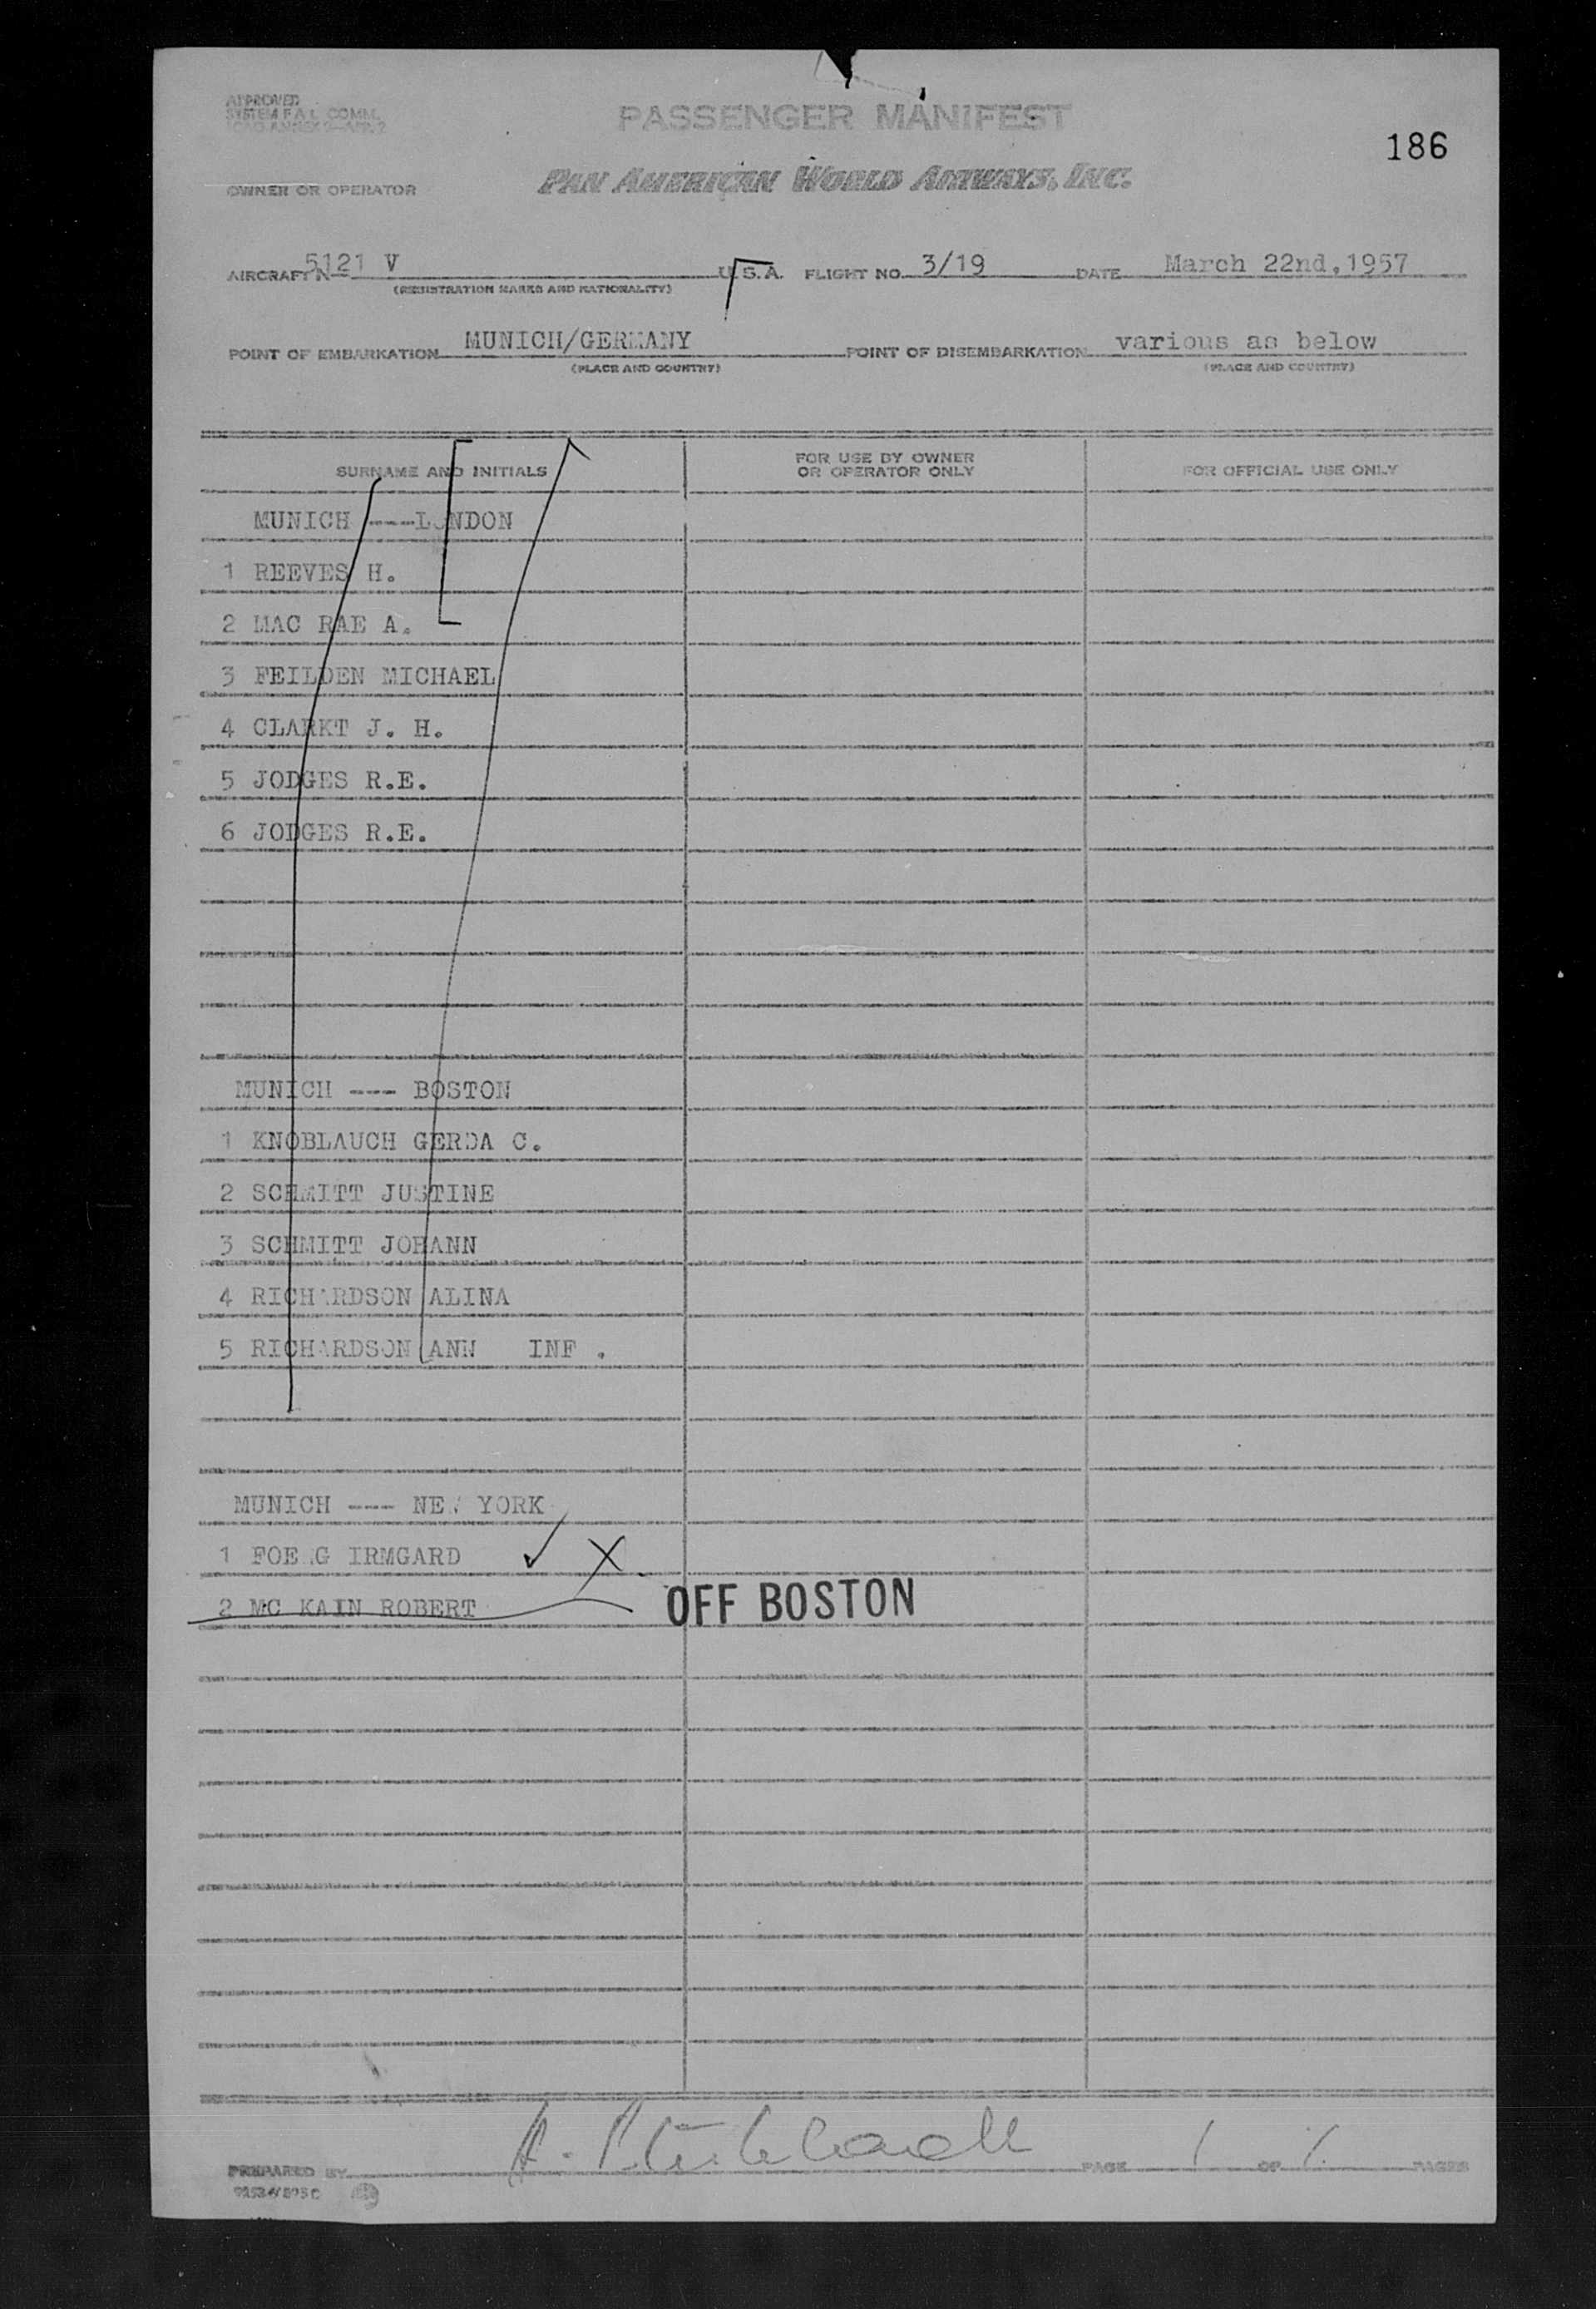 APPROVED
SYSTEM F.A.L. COMM.
ICAO ANNEX 9-APP. 2
PASSENGER MANIFEST
186
OWNER OR OPERATOR
PAN AMERICAN WORLD AIRWAYS, INC.
AIRCRAFT N 5121 V U.S.A. FLIGHT NO. 3/19 DATE March 22nd,1957
(REGISTRATION MARKS AND NATIONALITY)
POINT OF EMBARKATION MUNICH/GERMANY POINT OF DISEMBARKATION various as below
(PLACE AND COUNTRY) (PLACE AND COUNTRY)
SURNAME AND INITIALS FOR USE BY OWNER OR OPERATOR ONLY FOR OFFICIAL USE ONLY
MUNICH ---LONDON
1 REEVES H.
2 MAC RAE A.
3 FEILDEN MICHAEL
4 CLARKT J. H.
5 JODGES R.E.
6 JODGES R.E.
MUNICH --- BOSTON
1 KNOBLAUCH GERDA C.
2 SCHMITT JUSTINE
3 SCHMITT JOHANN
4 RICHARDSON ALINA
5 RICHARDSON ANN INF .
MUNICH --- NEW YORK
1 IRMGARD ✓ X
2 MC KAIN ROBERT OFF BOSTON
PREPARED BY PAGE 1 OF 1 PAGES